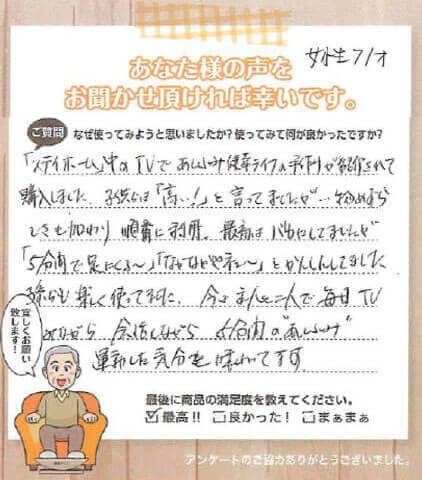 女性71才
あなた様の声を
お聞かせ頂ければ幸いです。
ご質問
なぜ使ってみようと思いましたか?使ってみて何が良かったですか?
「ステイホーム」中のTVであしふみ健幸ライフの
が紹介されて
購入しました、子供には「高い!」と言ってましたが…物めずら
しさも加わり順番に利用、最初はバカにしてましたが
「5分間で足にくる〜」「なかなかやネ〜」とかんしんしてました
孫たちも楽しく使ってます。今は主人と二人で毎日TV
見ながら会話しながら5分間の"あしふみ"
運動した気分を味わってます。
宜しくお願い
致します!
最後に商品の満足度を教えてください。
☑最高!! □良かった! □まぁまぁ
アンケートのご協力ありがとうございました。